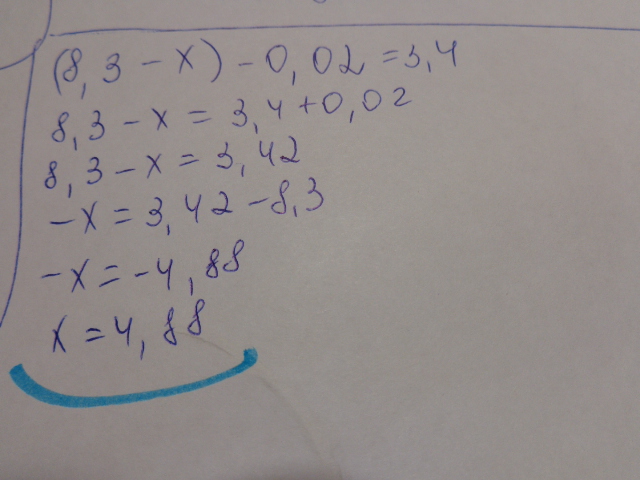 (8,3 - x) - 0,02 = 3,4
8,3 - x = 3,4 + 0,02
8,3 - x = 3,42
-x = 3,42 - 8,3
-x = -4,88
x = 4,88